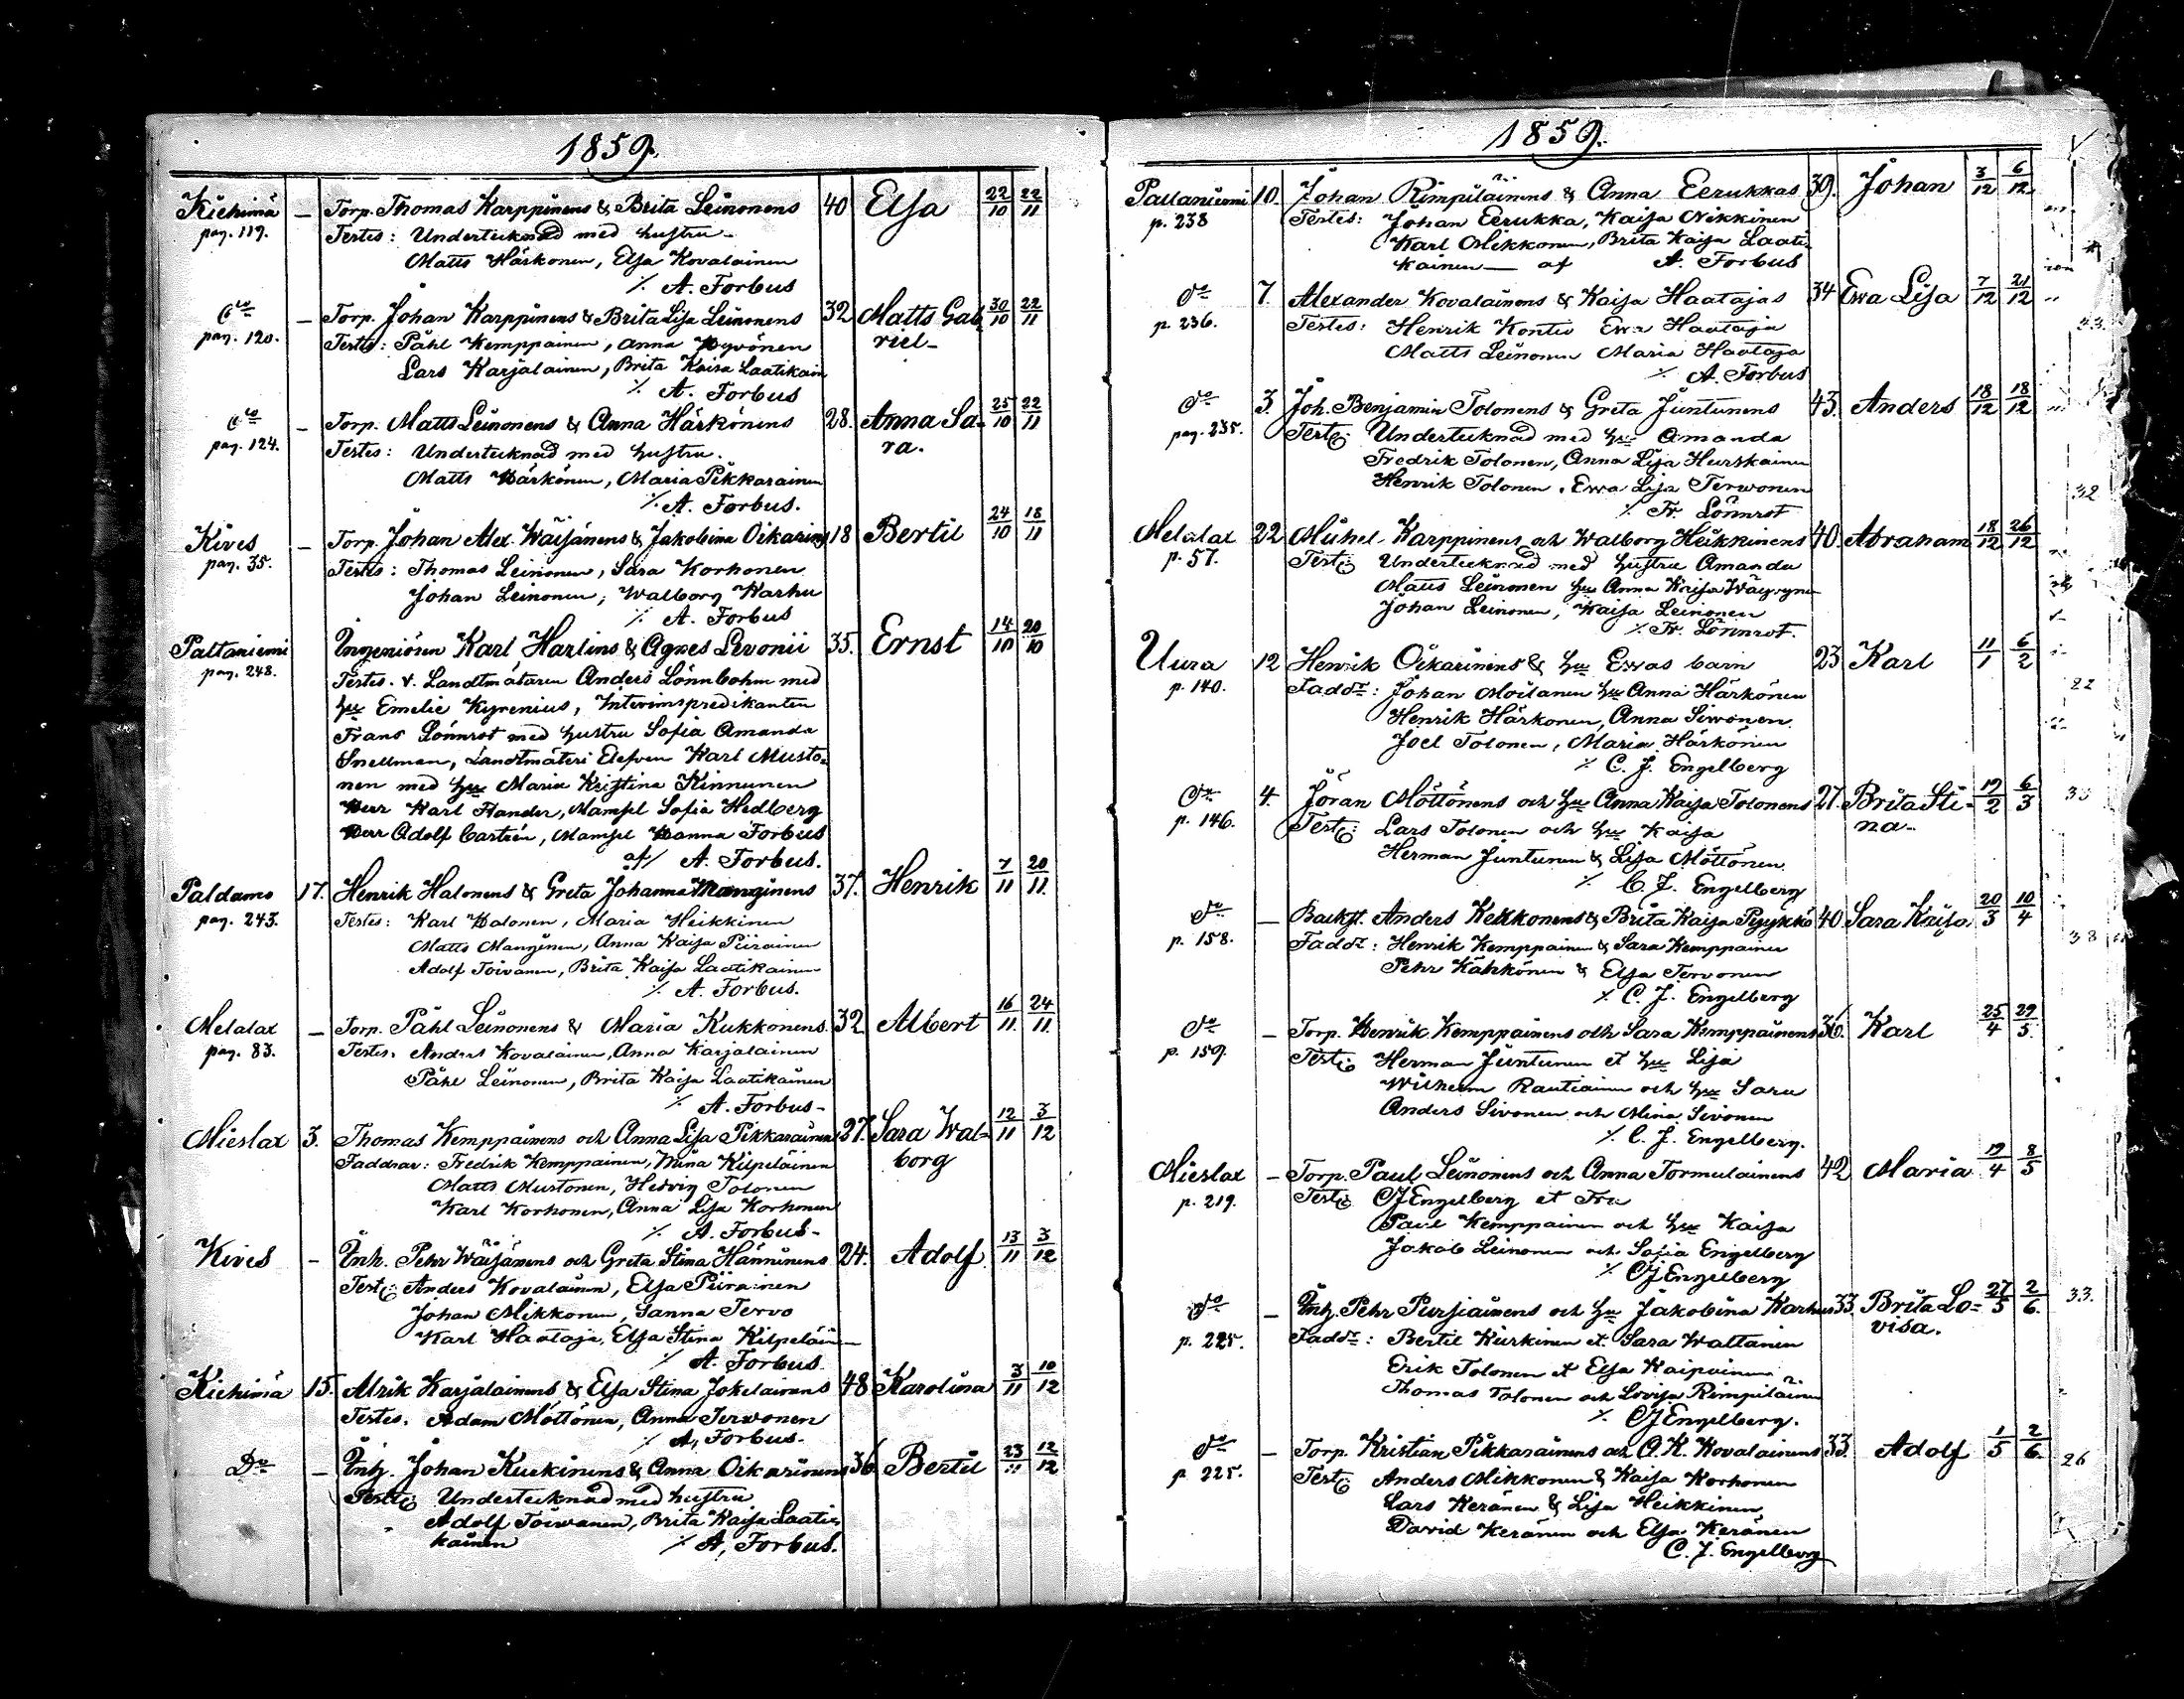 1859.
Kiehimä — Torp. Thomas Karppinens & Brita Leinonens 40 Elsa 22/10 22/11
pag. 119. Testes: Undertecknad med hustru
Matts Härkönen, Elsa Kovalainen
/. A. Forbus
Do — Torp. Johan Karppinens & Brita Lisa Leinonens 32 Matts Gab 30/10 22/11
pag. 120. Testes: Påhl Kemppainen, Anna Hyvönen riel
Lars Karjalainen, Brita Kaisa Laatikain
/. A. Forbus
Do — Torp. Matts Leinonens & Anna Härkönens 28. Anna Sa- 25/10 22/11
pag. 124. Testes: Undertecknad med hustru. ra.
Matts Härkönen, Maria Pikkarainen
/. A. Forbus.
Kives — Torp. Johan Alex. Wäisänens & Jakobina Oikarins 18 Bertil 24/10 18/11
pag. 35. Testes: Thomas Leinonen, Sara Korhonen
Johan Leinonen, Walborg Karhu
/. A. Forbus
Paltaniemi Ingeniören Karl Harlins & Agnes Levonii 35. Ernst 14/10 20/10
pag. 248. Testes. v. Landtmätaren Anders Lönnbohm med
hu Emelie Kyrenius, Interimspredikanten
Frans Lönnrot med hustru Sofia Amanda
Snellman, Landtmäteri Elefven Karl Musto-
nen med hu Maria Kristina Kinnunen
Herr Karl Flander, Mamsel Sofia Hedberg
Herr Adolf Castrén, Mamsel Hanna Forbus
af/ A. Forbus.
Paldamo 17. Henrik Halonens & Greta Johanna Manginens 37. Henrik 7/11 20/11.
pag. 243. Testes: Karl Halonen, Maria Heikkinen
Matts Manginen, Anna Kaisa Piirainen
Adolf Toivanen, Brita Kaisa Laatikainen
/. A. Forbus.
Melalax — Torp. Påhl Leinonens & Maria Kukkonens. 32 Albert 16/11. 24/11.
pag. 83. Testes. Anders Kovalainen, Anna Karjalainen
Påhl Leinonen, Brita Kaisa Laatikainen
/. A. Forbus-
Mieslax 3. Thomas Kemppainens och Anna Lisa Pikkarainens 27. Sara Wal- 12/11 3/12
Faddrar: Fredrik Kemppainen, Mina Kilpeläinen borg
Matts Mustonen, Hedvig Tolonen
Karl Korhonen, Anna Lisa Korhonen
/. A. Forbus-
Kives — Inh. Pehr Wäisänens och Greta Stina Hänninens 24. Adolf 13/11 3/12
Test: Anders Kovalainen, Elsa Piirainen
Johan Mikkonen, Sanna Tervo
Karl Haataja, Elsa Stina Kilpeläin
/. A. Forbus
Kiehimä 15. Alrik Karjalainens & Elsa Stina Jokelainens 48 Karolina 3/11 10/12
Testes. Adam Möttönen, Anna Terwonen
/. A, Forbus-
Do — Inh. Johan Kurkinens & Anna Oikarinens 36 Bertil 23/11 12/12
Test: Undertecknad med hustru
Adolf Toiwanen, Brita Kaisa Laati-
kainen /. A, Forbus.
1859.
Paltaniemi 10. Johan Rimpiläinens & Anna Eerukkas 39. Johan 3/12 6/12
p. 238 Testes: Johan Eerukka, Kaisa Nikkinen
Karl Mikkonen, Brita Kaisa Laati-
kainen — af A. Forbus
Do 7. Alexander Kovalainens & Kaisa Haatajas 34 Ewa Lisa 7/12 21/12
p. 236. Testes: Henrik Kontio Ewa Haataja
Matts Leinonen Maria Haataja
/. A. Forbus
Do 3. Joh. Benjamin Tolonens & Greta Juntunens 43. Anders 18/12 18/12
pag. 235. Test: Undertecknad med hu Amanda
Fredrik Tolonen, Anna Lisa Hurskainen
Henrik Tolonen. Ewa Lisa Terwonen
/. Fr. Lönnrot
Melalax 22 Mikel Karppinens och Walborg Heikkinens 40. Abraham 18/12 26/12
p. 57. Test: Undertecknad med hustru Amanda
Matts Leinonen hu Anna Kaisa Wäyryne
Johan Leinonen, Kaisa Leinonen
/. Fr. Lönnrot.
Uura 12 Henrik Oikarinens & hu Ewas barn 23 Karl 11/1 6/2
p. 140. Faddr: Johan Moilanen hu Anna Härkönen
Henrik Härkönen, Anna Siwonen
Joel Tolonen, Maria Härkönen
/. C. J. Engelberg
Do 4. Jöran Möttönens och hu Anna Kaisa Tolonens 27. Brita Sti- 19/2 6/3
p. 146. Test: Lars Tolonen och hu Kaisa na-
Herman Juntunen & Lisa Möttönen
/. C. J. Engelberg
Do — Backst. Anders Kekkonens & Brita Kaisa Pyykkö 40 Sara Kaisa 20/3 10/4
p. 158. Faddr: Henrik Kemppainen & Sara Kemppainen
Pehr Kähkönen & Elsa Tervonen
/. C. J. Engelberg
Do — Torp. Henrik Kemppainens och Sara Kemppainens 36. Karl 25/4 29/5.
p. 159. Test: Herman Juntunen et hu Lisa
Wilhelm Rautiainen och hu Sara
Anders Sivonen och Mina Sivonen
/. C. J. Engelberg.
Mieslax — Torp. Paul Leinonens och Anna Tormulainens 42 Maria 19/4 8/5
p. 219. Test: CJ Engelberg et Fru
Paul Kemppainen och hu Kaisa
Jakob Leinonen och Sofia Engelberg
/. CJ Engelberg
Do — Inh. Pehr Pursiainens och hu Jakobina Karhus 33. Brita Lo- 27/5 2/6.
p. 225. Faddr: Bertil Kurkinen et Sara Wattanen visa.
Erik Tolonen et Elsa Kaipainen
Thomas Tolonen och Lovisa Rimpiläinen
/. CJ Engelberg.
Do — Torp. Kristian Pikkarainens och A. K. Kovalainens 33. Adolf 1/5 2/6.
p 225. Test: Anders Mikkonen & Kaisa Korhonen
Lars Keränen & Lisa Heikkinen
David Keränen och Elsa Keränen
C. J. Engelberg
32
22
38
33.
26